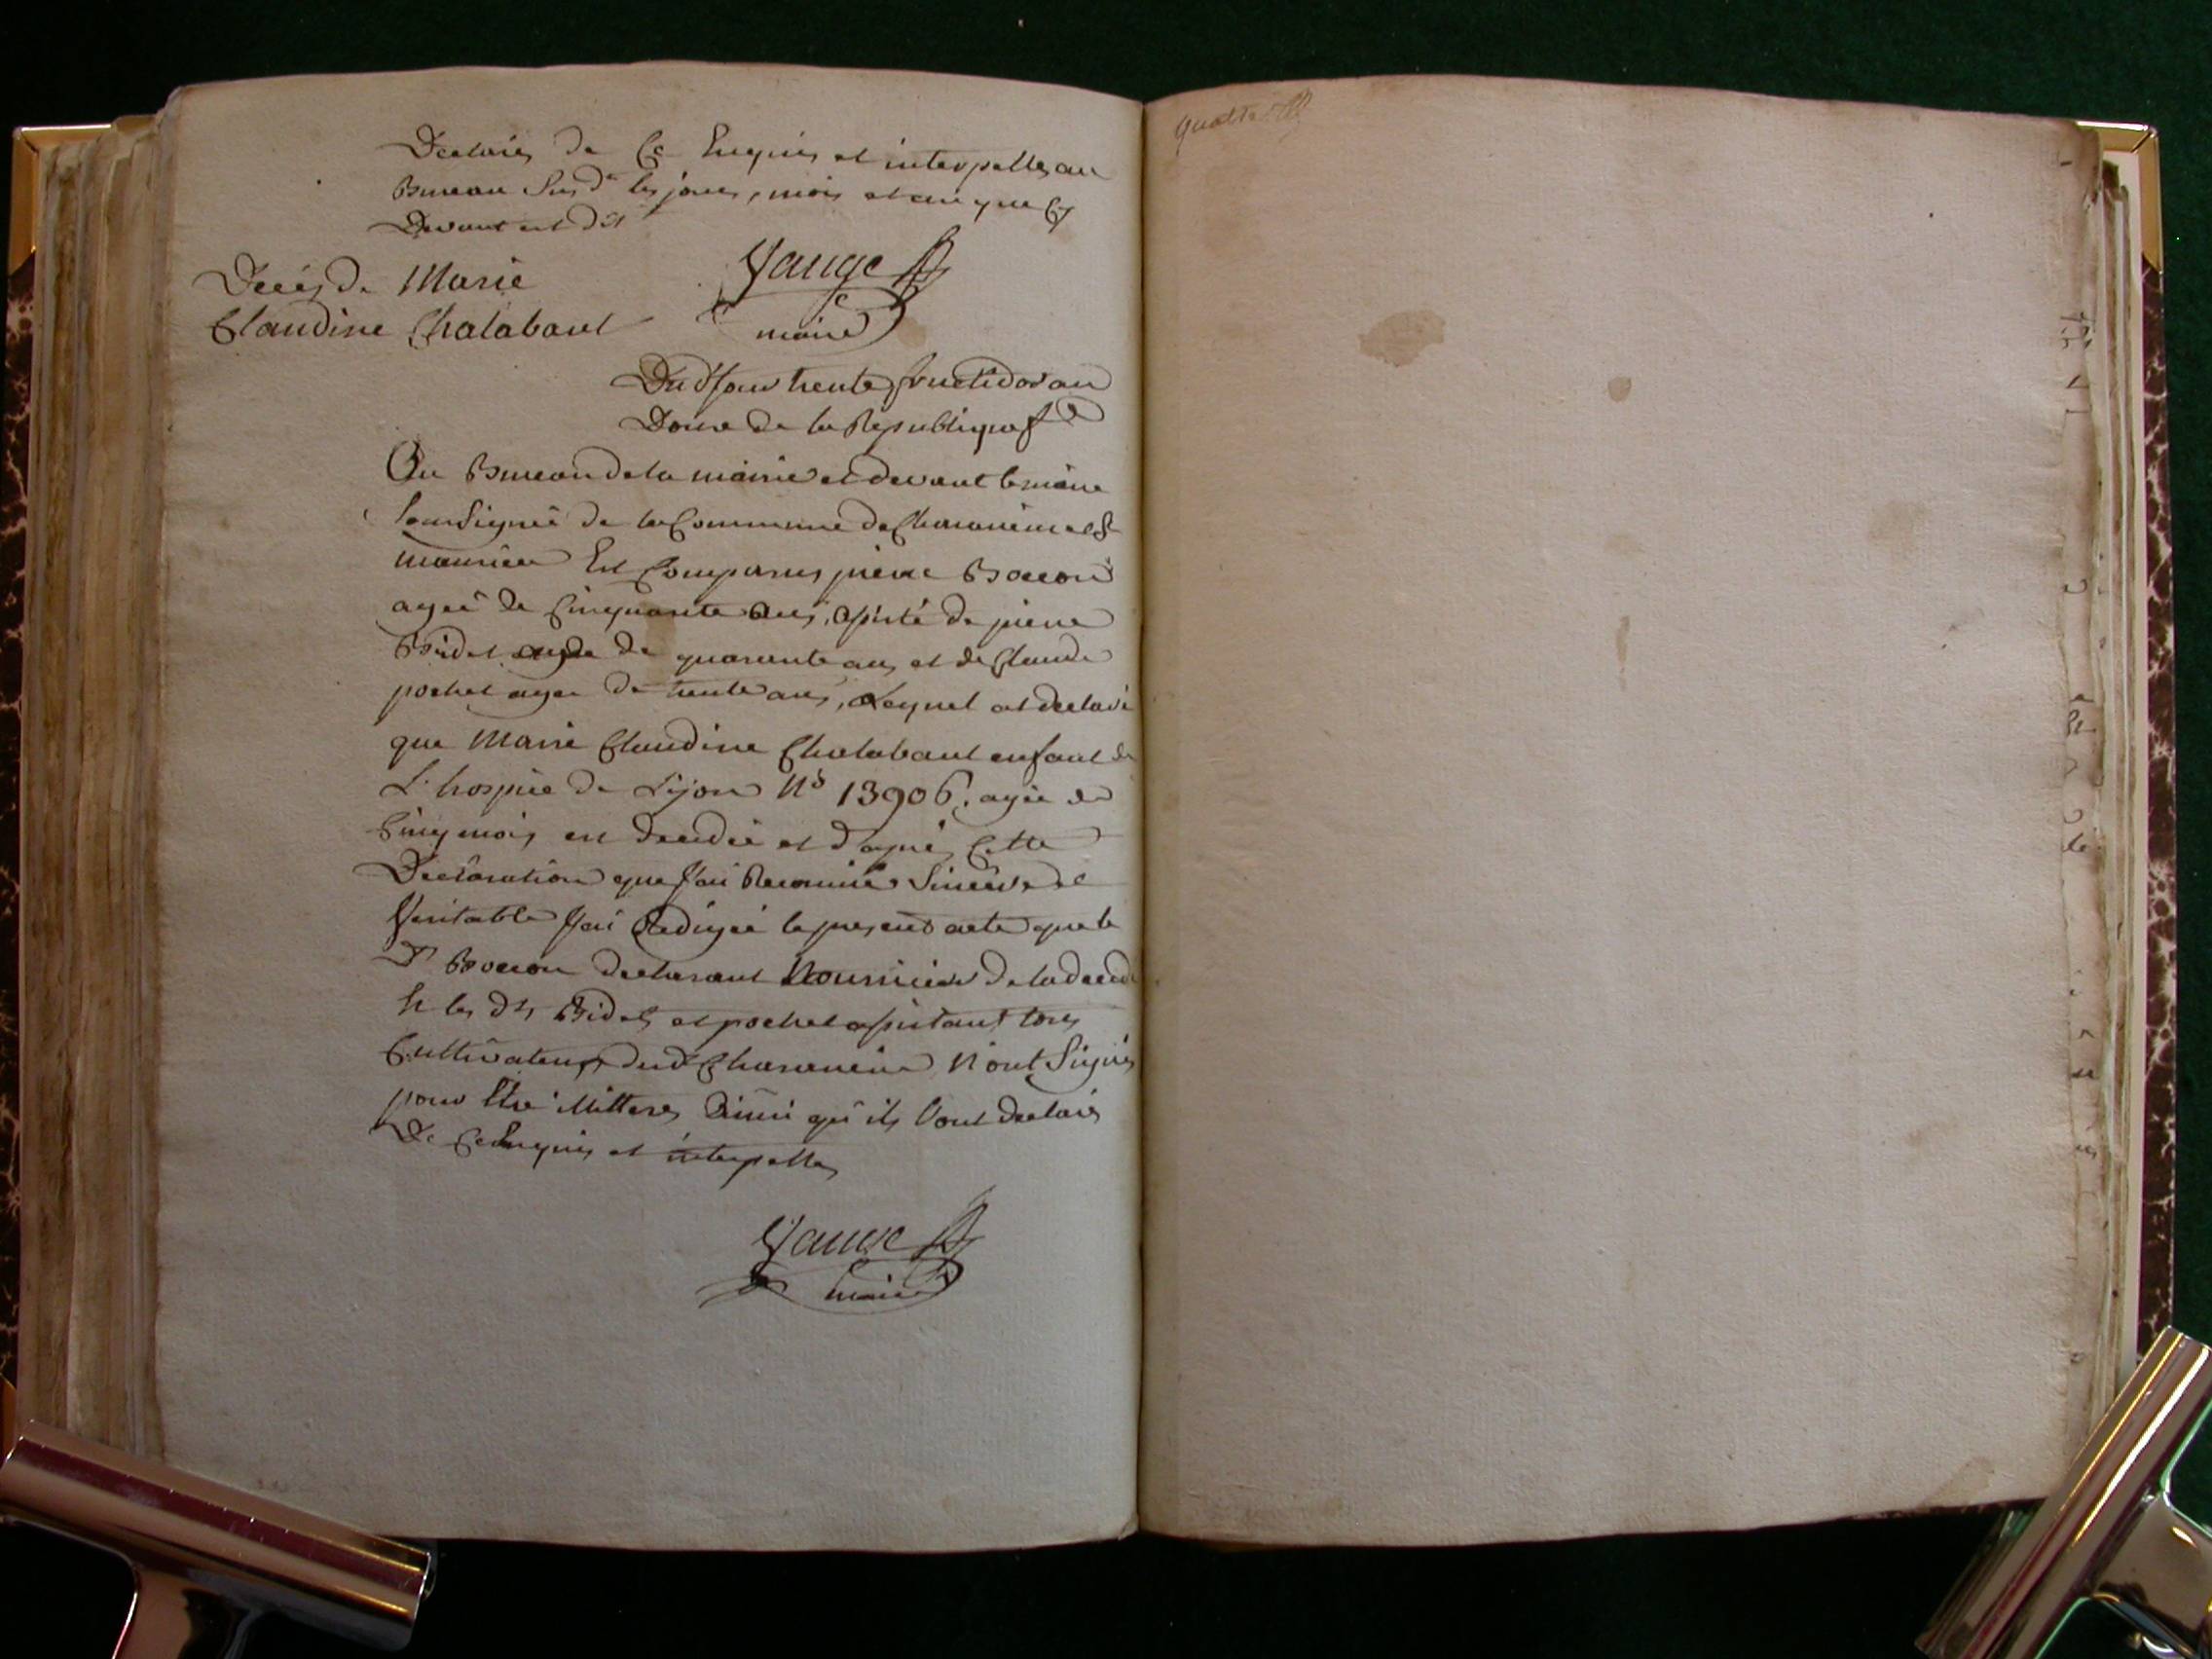 Declarés de Ce Enquis et interpellés au
Bureau Susd. les jours, mois et an que Cy
Devant est dit
Vauge
maire
Décés de Marie
Claudine Chalabaud
Dud Jour trente fructidor an
Douze de la Republique f
Au Bureau de la mairie et devant le maire
Soussigné de la Commune de Chavanieu et St
maurice Est Comparus pierre Boccon
ageé de Cinquante ans, assisté de pierre
Bidel agée de quarante ans et de Claude
pochet agee de trente ans, Lequel at declaré
que Marie Claudine Chalabaud enfant de
L'hospice de Lÿon No 13906, agée de
Cinq mois est decedée et d'apres Cette
Declaration que J'ai Reconnue Sincere et
Veritable J'ai Redigée le present acte que le
d Boccon declarant Nourricier de la deced
et les dts Bidel et pochet assistant tous
Cultivateurs dud Chavanieu N'ont Signés
pour Etre illitterés Ainsi qu'ils l'ont declarés
De Ce Enquis et interpellés
Vauge
maire